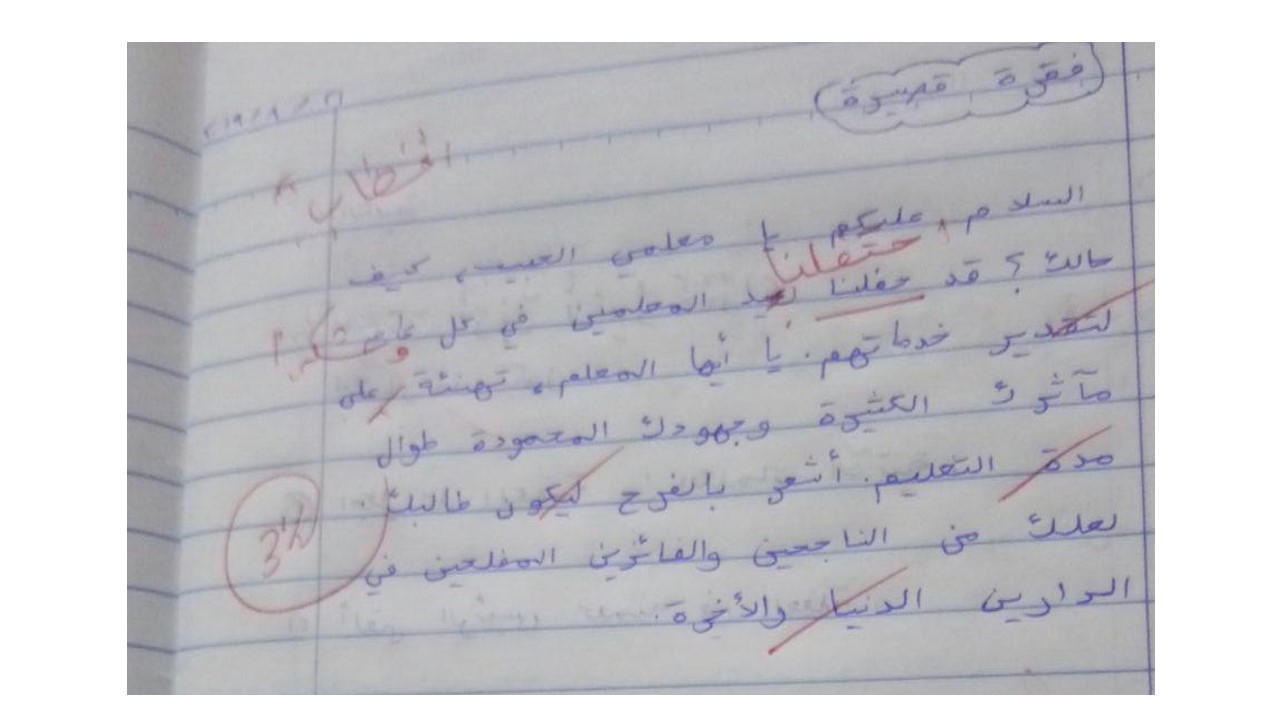 فقرة قصيرة
السلام عليكم يا معلمي الحبيب، كيف
حتفلنا
حالك؟ قد حفلنا لعيد المعلمين في كل عام
لتقدير خدماتهم. يا أيها المعلم، تهنئة على
مآثرك الكثيرة وجهودك المحمودة طوال
مدة التعليم. أشعر بالفرح ليكون طالبك.
لعلك من الناجحين والفائزين المفلحين في
الدارين الدنيا والأخرة.